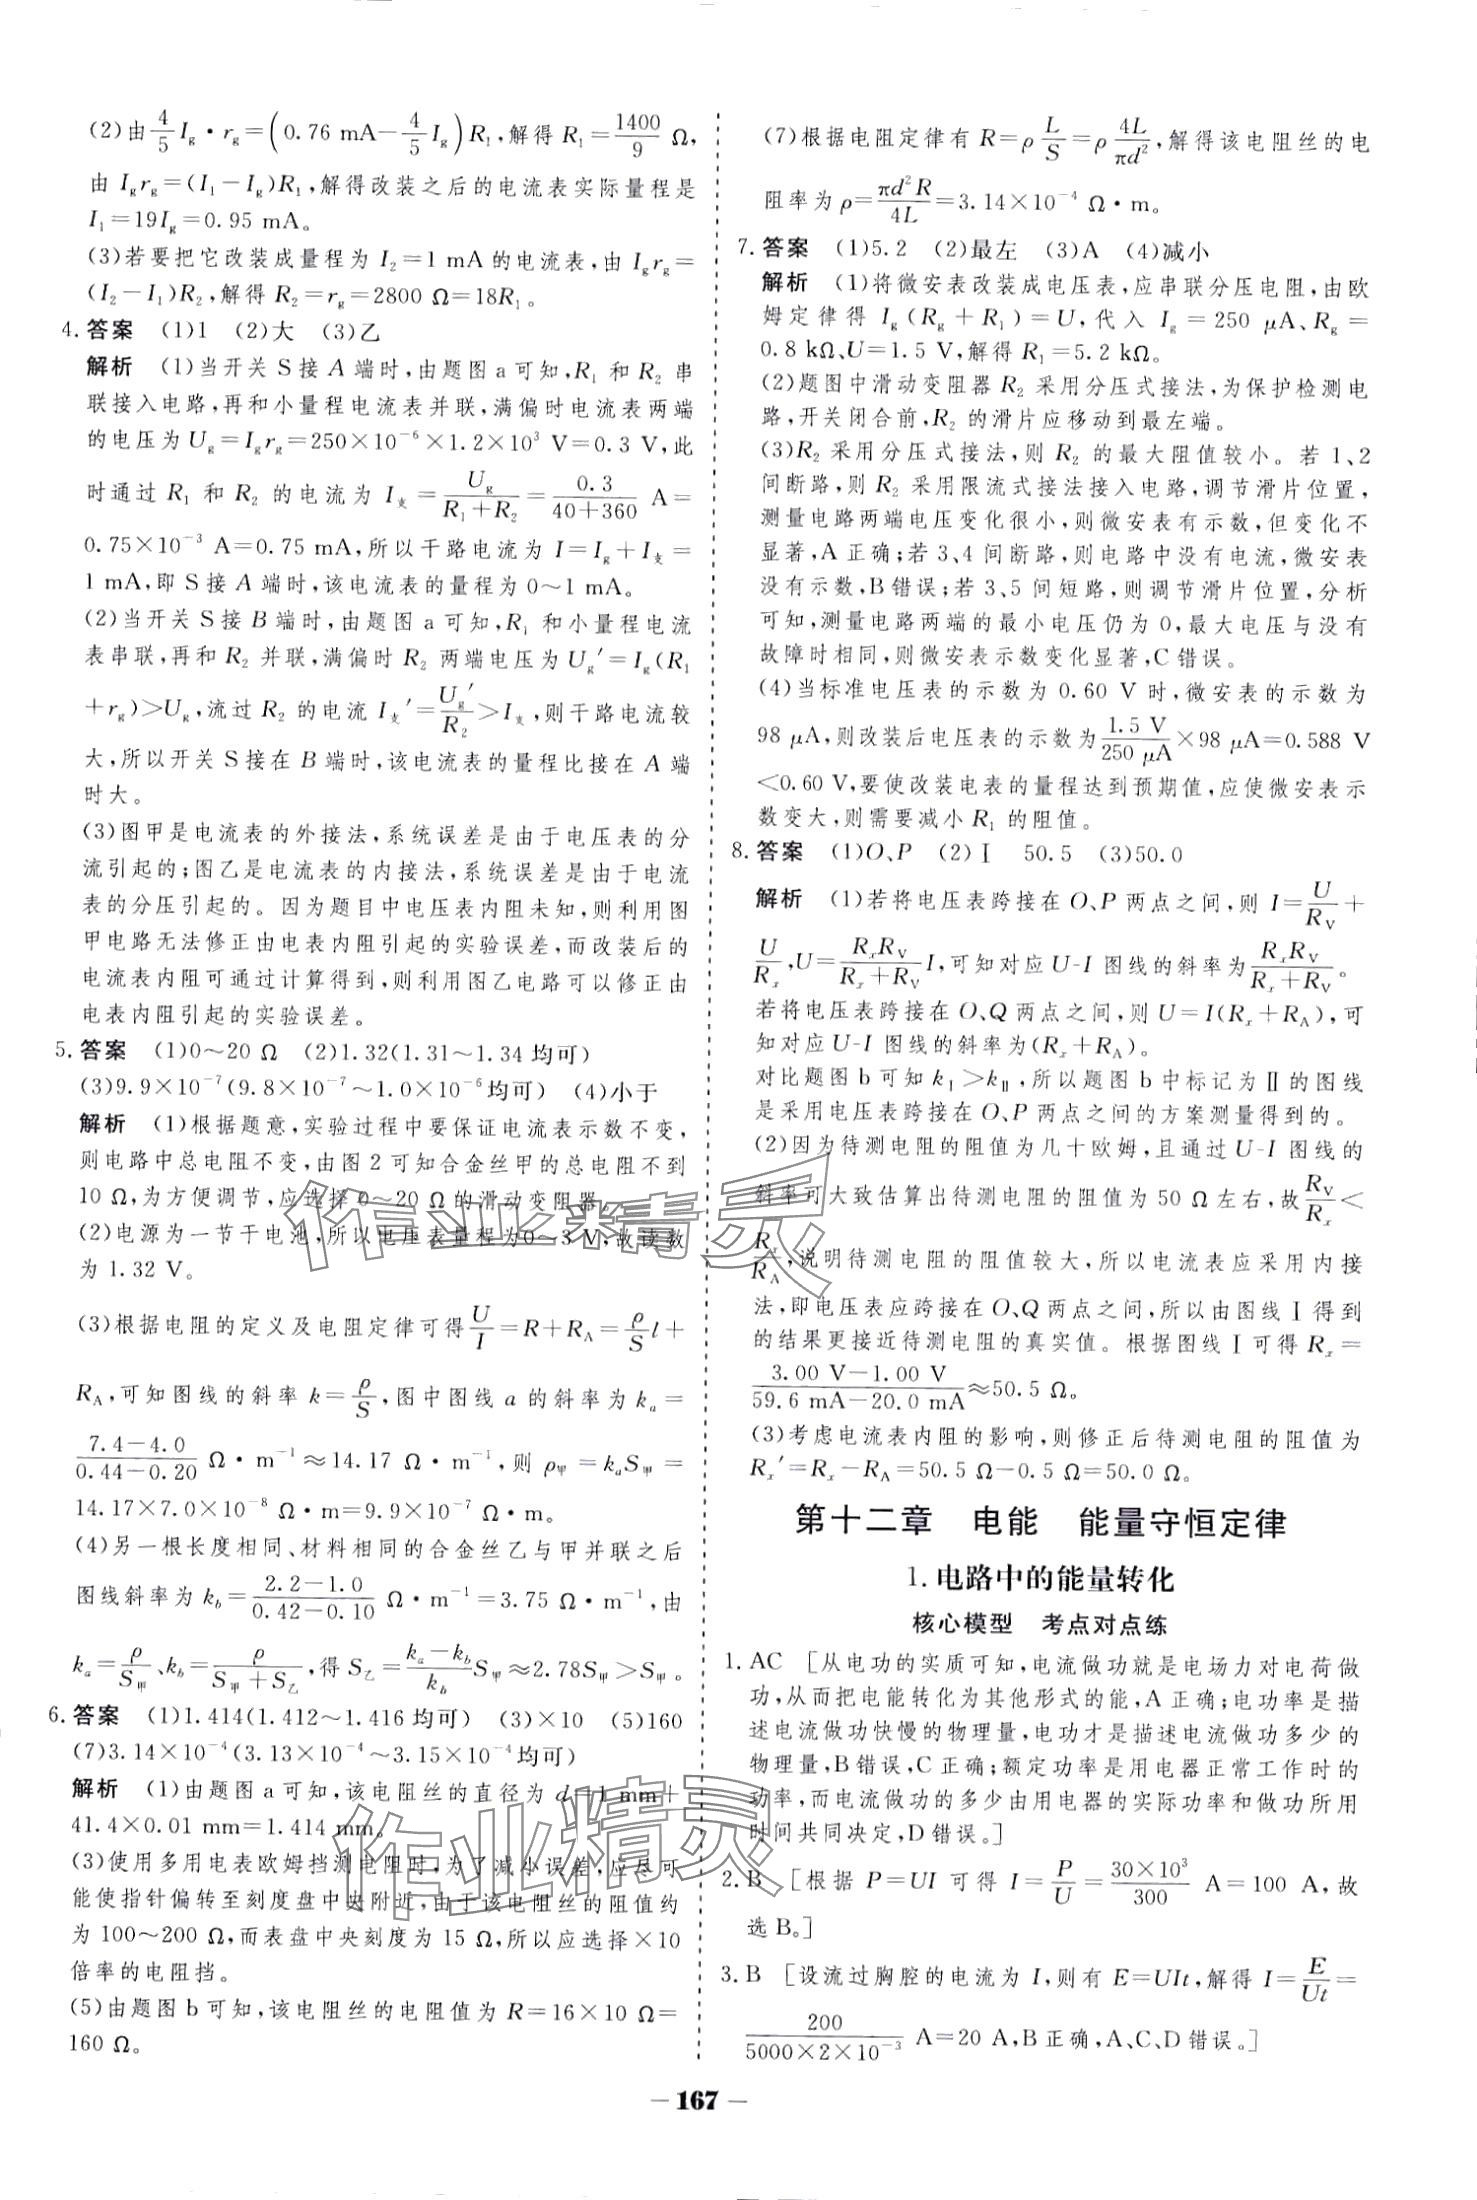 (2)由4/5 I_g·r_g=(0.76 mA−4/5 I_g)R₁,解得 R₁=1400/9 Ω,
由 I_g r_g=(I₁−I_g)R₁,解得改装之后的电流表实际量程是
I₁=19I_g=0.95 mA。
(3)若要把它改装成量程为 I₂=1 mA的电流表,由 I_g r_g=
(I₂−I₁)R₂,解得 R₂=r_g=2800 Ω=18R₁。
4.答案 (1)1 (2)大 (3)乙
解析 (1)当开关 S接 A 端时,由题图 a可知,R₁ 和 R₂ 串
联接入电路,再和小量程电流表并联,满偏时电流表两端
的电压为 U_g=I_g r_g=250×10⁻⁶×1.2×10³ V=0.3 V,此
时通过 R₁ 和 R₂ 的电流为 I支=U_g/(R₁+R₂)=0.3/(40+360) A=
0.75×10⁻³ A=0.75 mA,所以干路电流为 I=I_g+I支=
1 mA,即 S接 A端时,该电流表的量程为 0～1 mA。
(2)当开关 S接 B 端时,由题图 a 可知,R₁ 和小量程电流
表串联,再和 R₂ 并联,满偏时 R₂ 两端电压为 U_g′=I_g(R₁
+r_g)>U_g,流过 R₂ 的电流 I支′=U_g′/R₂>I支,则干路电流较
大,所以开关 S接在 B 端时,该电流表的量程比接在 A 端
时大。
(3)图甲是电流表的外接法,系统误差是由于电压表的分
流引起的;图乙是电流表的内接法,系统误差是由于电流
表的分压引起的。因为题目中电压表内阻未知,则利用图
甲电路无法修正由电表内阻引起的实验误差,而改装后的
电流表内阻可通过计算得到,则利用图乙电路可以修正由
电表内阻引起的实验误差。
5.答案 (1)0～20 Ω (2)1.32(1.31～1.34 均可)
(3)9.9×10⁻⁷(9.8×10⁻⁷～1.0×10⁻⁶均可) (4)小于
解析 (1)根据题意,实验过程中要保证电流表示数不变,
则电路中总电阻不变,由图 2 可知合金丝甲的总电阻不到
10 Ω,为方便调节,应选择 0～20 Ω 的滑动变阻器。
(2)电源为一节干电池,所以电压表量程为0～3 V,故读数
为 1.32 V。
(3)根据电阻的定义及电阻定律可得U/I=R+R_A=ρ/S l+
R_A,可知图线的斜率 k=ρ/S,图中图线 a 的斜率为 kₐ=
(7.4−4.0)/(0.44−0.20) Ω·m⁻¹≈14.17 Ω·m⁻¹,则 ρ甲=kₐS甲=
14.17×7.0×10⁻⁸ Ω·m=9.9×10⁻⁷ Ω·m。
(4)另一根长度相同、材料相同的合金丝乙与甲并联之后
图线斜率为 k_b=(2.2−1.0)/(0.42−0.10) Ω·m⁻¹=3.75 Ω·m⁻¹,由
kₐ=ρ/S甲、k_b=ρ/(S甲+S乙),得 S乙=(kₐ−k_b)/k_b S甲≈2.78S甲>S甲。
6.答案 (1)1.414(1.412～1.416 均可) (3)×10 (5)160
(7)3.14×10⁻⁴(3.13×10⁻⁴～3.15×10⁻⁴均可)
解析 (1)由题图 a 可知,该电阻丝的直径为 d=1 mm+
41.4×0.01 mm=1.414 mm。
(3)使用多用电表欧姆挡测电阻时,为了减小误差,应尽可
能使指针偏转至刻度盘中央附近,由于该电阻丝的阻值约
为 100～200 Ω,而表盘中央刻度为 15 Ω,所以应选择×10
倍率的电阻挡。
(5)由题图 b 可知,该电阻丝的电阻值为 R=16×10 Ω=
160 Ω。
(7)根据电阻定律有 R=ρ L/S=ρ 4L/(πd²),解得该电阻丝的电
阻率为 ρ=πd²R/4L=3.14×10⁻⁴ Ω·m。
7.答案 (1)5.2 (2)最左 (3)A (4)减小
解析 (1)将微安表改装成电压表,应串联分压电阻,由欧
姆定律得 I_g(R_g+R₁)=U,代入 I_g=250 μA、R_g=
0.8 kΩ、U=1.5 V,解得 R₁=5.2 kΩ。
(2)题图中滑动变阻器 R₂ 采用分压式接法,为保护检测电
路,开关闭合前,R₂ 的滑片应移动到最左端。
(3)R₂ 采用分压式接法,则 R₂ 的最大阻值较小。若 1、2
间断路,则 R₂ 采用限流式接法接入电路,调节滑片位置,
测量电路两端电压变化很小,则微安表有示数,但变化不
显著,A正确;若 3、4间断路,则电路中没有电流,微安表
没有示数,B错误;若 3、5 间短路,则调节滑片位置,分析
可知,测量电路两端的最小电压仍为 0,最大电压与没有
故障时相同,则微安表示数变化显著,C错误。
(4)当标准电压表的示数为 0.60 V 时,微安表的示数为
98 μA,则改装后电压表的示数为1.5 V/250 μA×98 μA=0.588 V
<0.60 V,要使改装电表的量程达到预期值,应使微安表示
数变大,则需要减小 R₁ 的阻值。
8.答案 (1)O、P (2)Ⅰ 50.5 (3)50.0
解析 (1)若将电压表跨接在 O、P 两点之间,则 I=U/R_V+
U/Rₓ,U=RₓR_V/(Rₓ+R_V) I,可知对应 U-I 图线的斜率为RₓR_V/(Rₓ+R_V)。
若将电压表跨接在 O、Q 两点之间,则 U=I(Rₓ+R_A),可
知对应 U-I 图线的斜率为(Rₓ+R_A)。
对比题图 b 可知 kⅠ>kⅡ,所以题图 b 中标记为Ⅱ的图线
是采用电压表跨接在 O、P 两点之间的方案测量得到的。
(2)因为待测电阻的阻值为几十欧姆,且通过 U-I 图线的
斜率可大致估算出待测电阻的阻值为 50 Ω 左右,故R_V/Rₓ<
Rₓ/R_A,说明待测电阻的阻值较大,所以电流表应采用内接
法,即电压表应跨接在 O、Q 两点之间,所以由图线Ⅰ得到
的结果更接近待测电阻的真实值。根据图线Ⅰ可得 Rₓ=
(3.00 V−1.00 V)/(59.6 mA−20.0 mA)≈50.5 Ω。
(3)考虑电流表内阻的影响,则修正后待测电阻的阻值为
Rₓ′=Rₓ−R_A=50.5 Ω−0.5 Ω=50.0 Ω。
第十二章 电能 能量守恒定律
1.电路中的能量转化
核心模型 考点对点练
1.AC [从电功的实质可知,电流做功就是电场力对电荷做
功,从而把电能转化为其他形式的能,A正确;电功率是描
述电流做功快慢的物理量,电功才是描述电流做功多少的
物理量,B错误,C正确;额定功率是用电器正常工作时的
功率,而电流做功的多少由用电器的实际功率和做功所用
时间共同决定,D错误。]
2.B [根据 P=UI 可得 I=P/U=30×10³/300 A=100 A,故
选B。]
3.B [设流过胸腔的电流为 I,则有 E=UIt,解得 I=E/Ut=
200/(5000×2×10⁻³) A=20 A,B正确,A、C、D错误。]
— 167 —
作业精灵
作业精灵